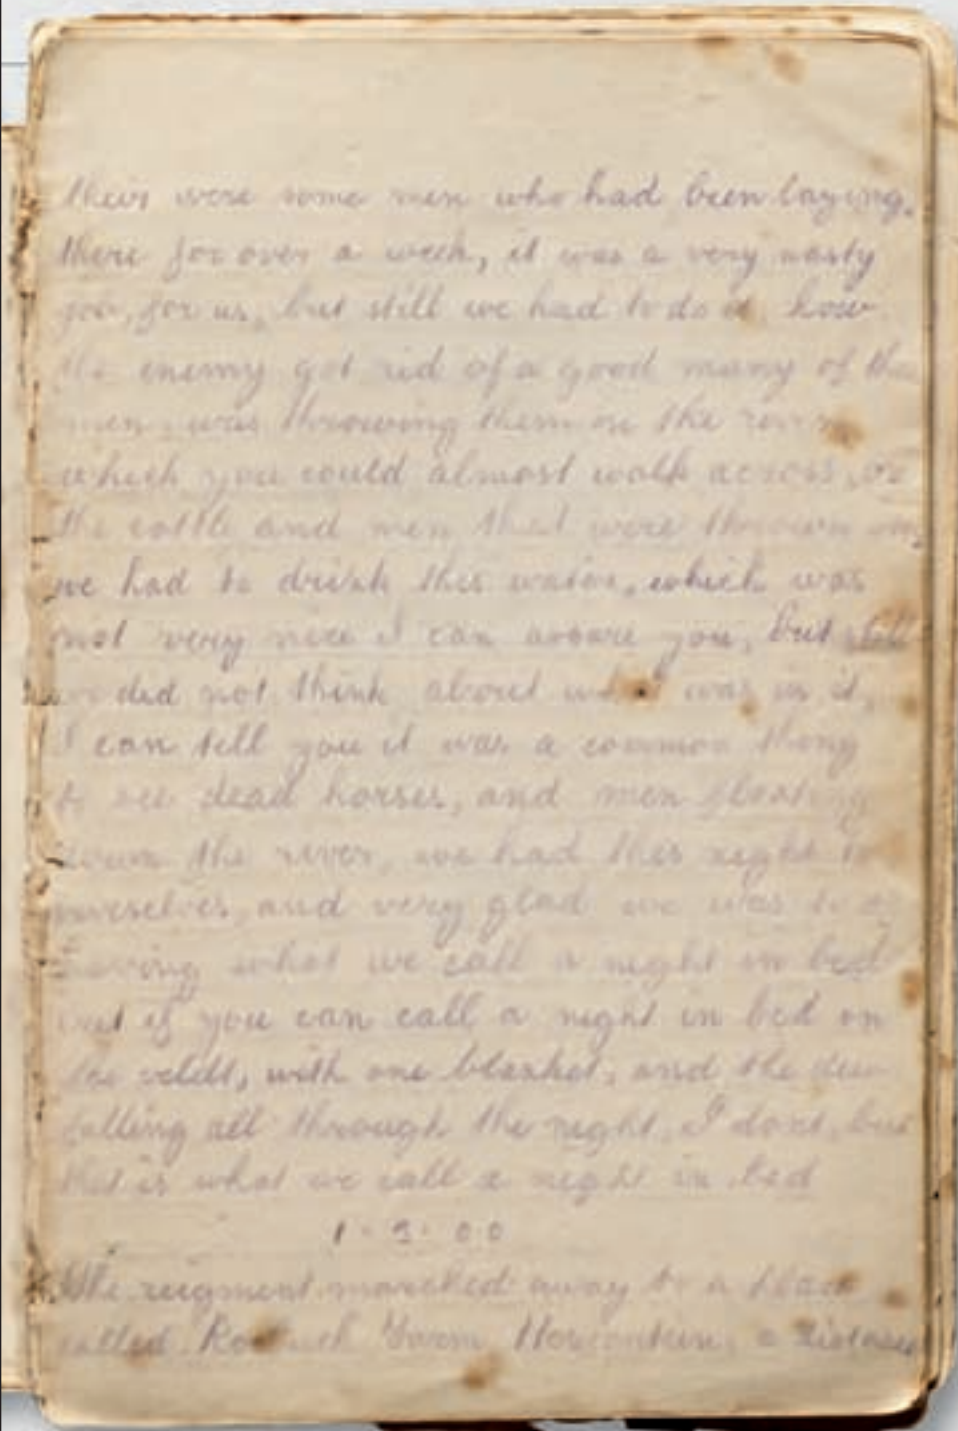 theirs were some men who had been laying,
there for over a week, it was a very nasty
for us, but still we had to do it, how
the enemy got rid of a good many of
men, was throwing them in the river
which you could almost walk across,
the cattle and men that were thrown in,
we had to drink this water, which was
not very nice I can assure you, but still
we did not think about what was in it,
I can tell you it was a common thing
to see dead horses, and men floating
down the river, we had this night to
ourselves, and very glad we was to
having what we call a night in bed
but if you can call a night in bed on
the veldt, with one blanket, and the dew
falling all through the night, I dont, but
that is what we call a night in bed
1 - 3 - 00
The regment marched away to a place
called Farm a distance